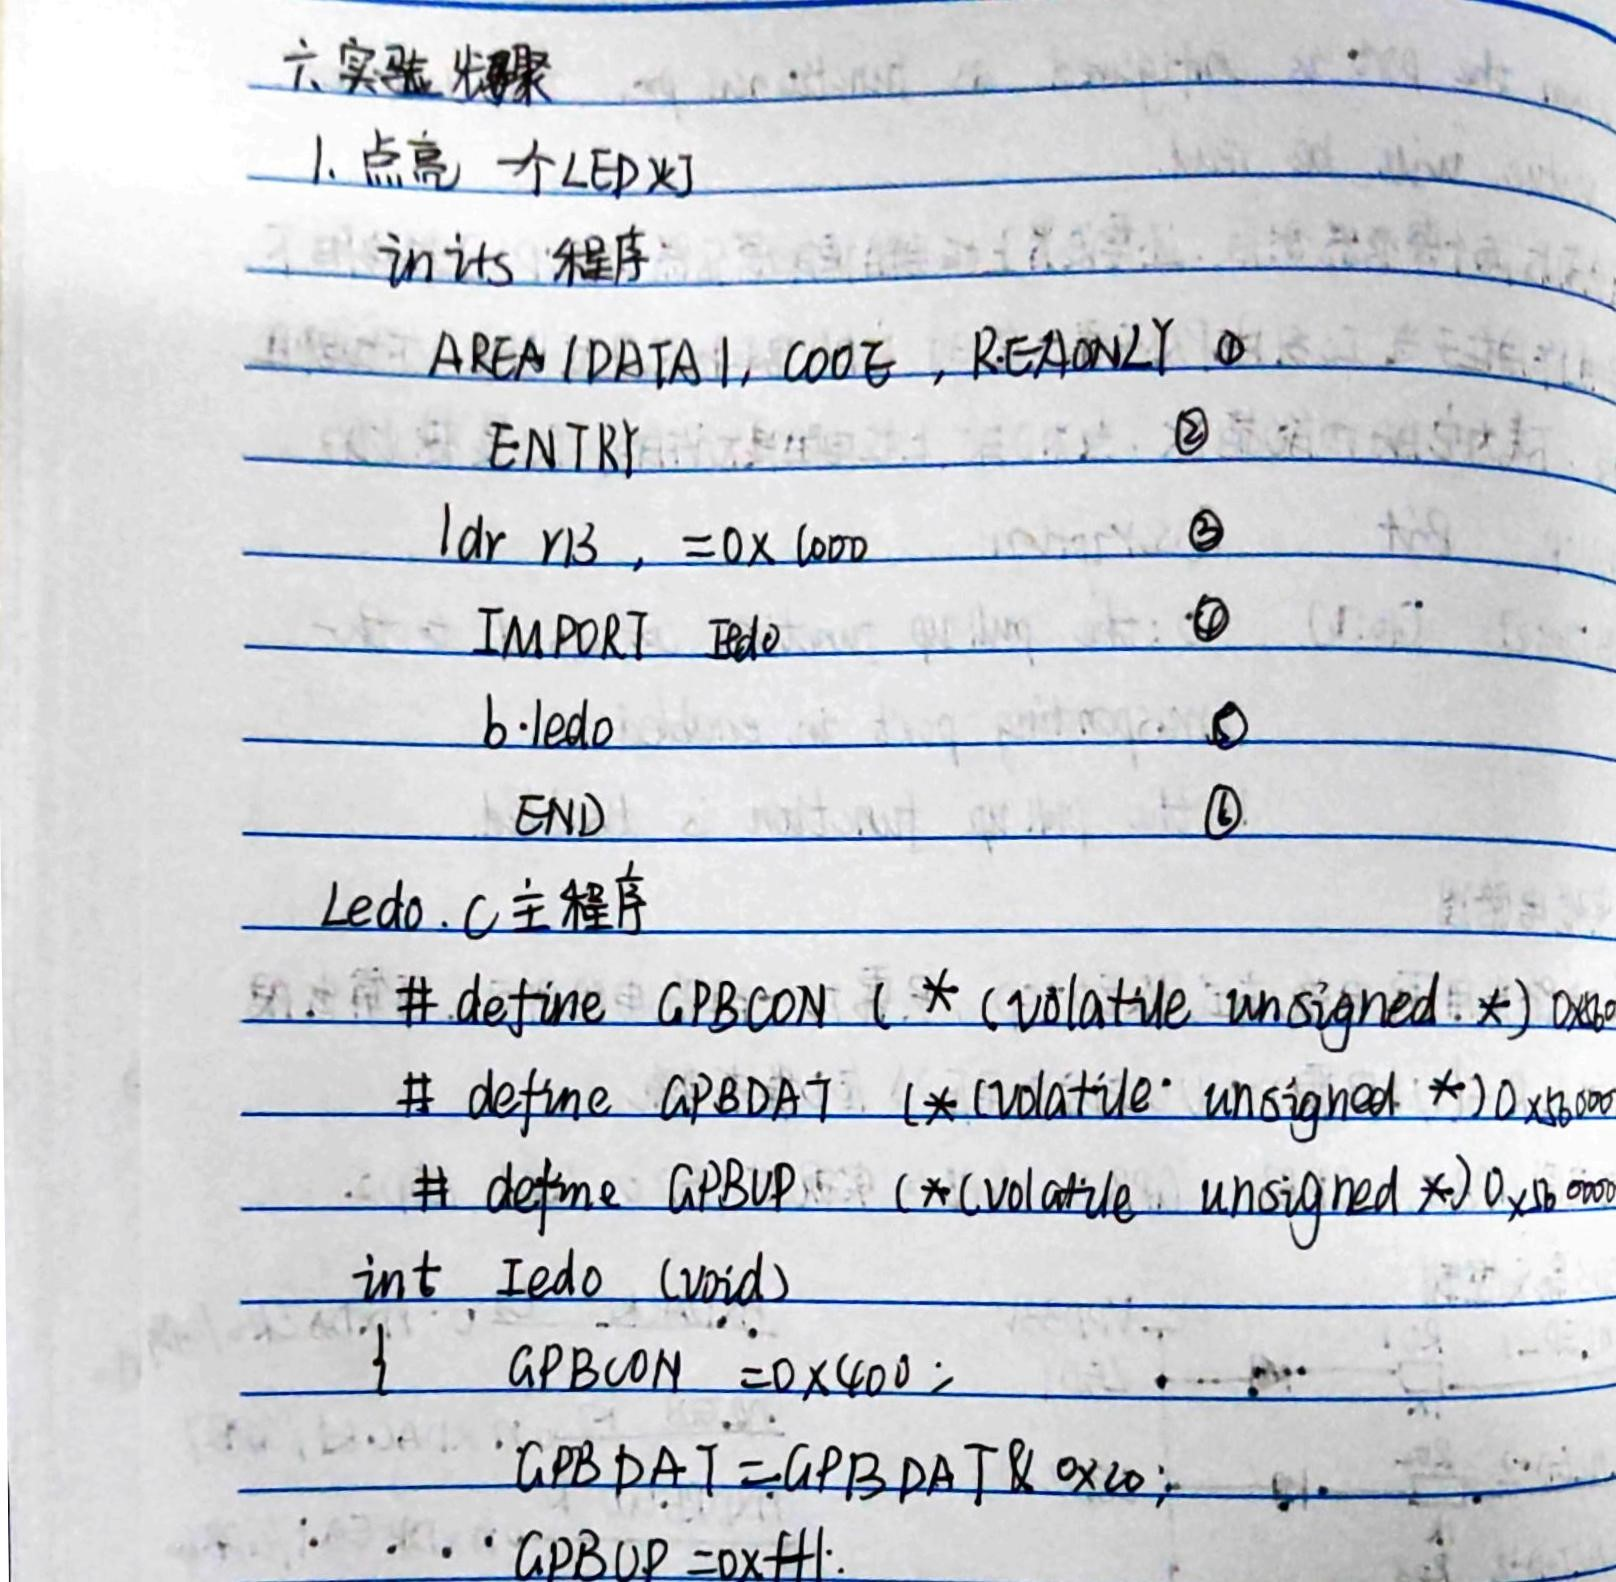 六.实验步骤
1.点亮 一个LED灯
inits 程序
AREA |DATA|, COOE , READONLY ①
ENTRY ②
ldr r13 , =0x1000 ③
IMPORT Iedo ④
b ledo ⑤
END ⑥
Ledo.C主程序
# define GPBCON ( * (volatile unsigned *) 0x560
# define GPBDAT (* (volatile unsigned *) 0x56000
# define GPBUP (* (volatile unsigned *) 0x560000
int Iedo (void)
{ GPBCON =0x400;
GPBDAT =GPBDAT & 0x20;
GPBUP =0x